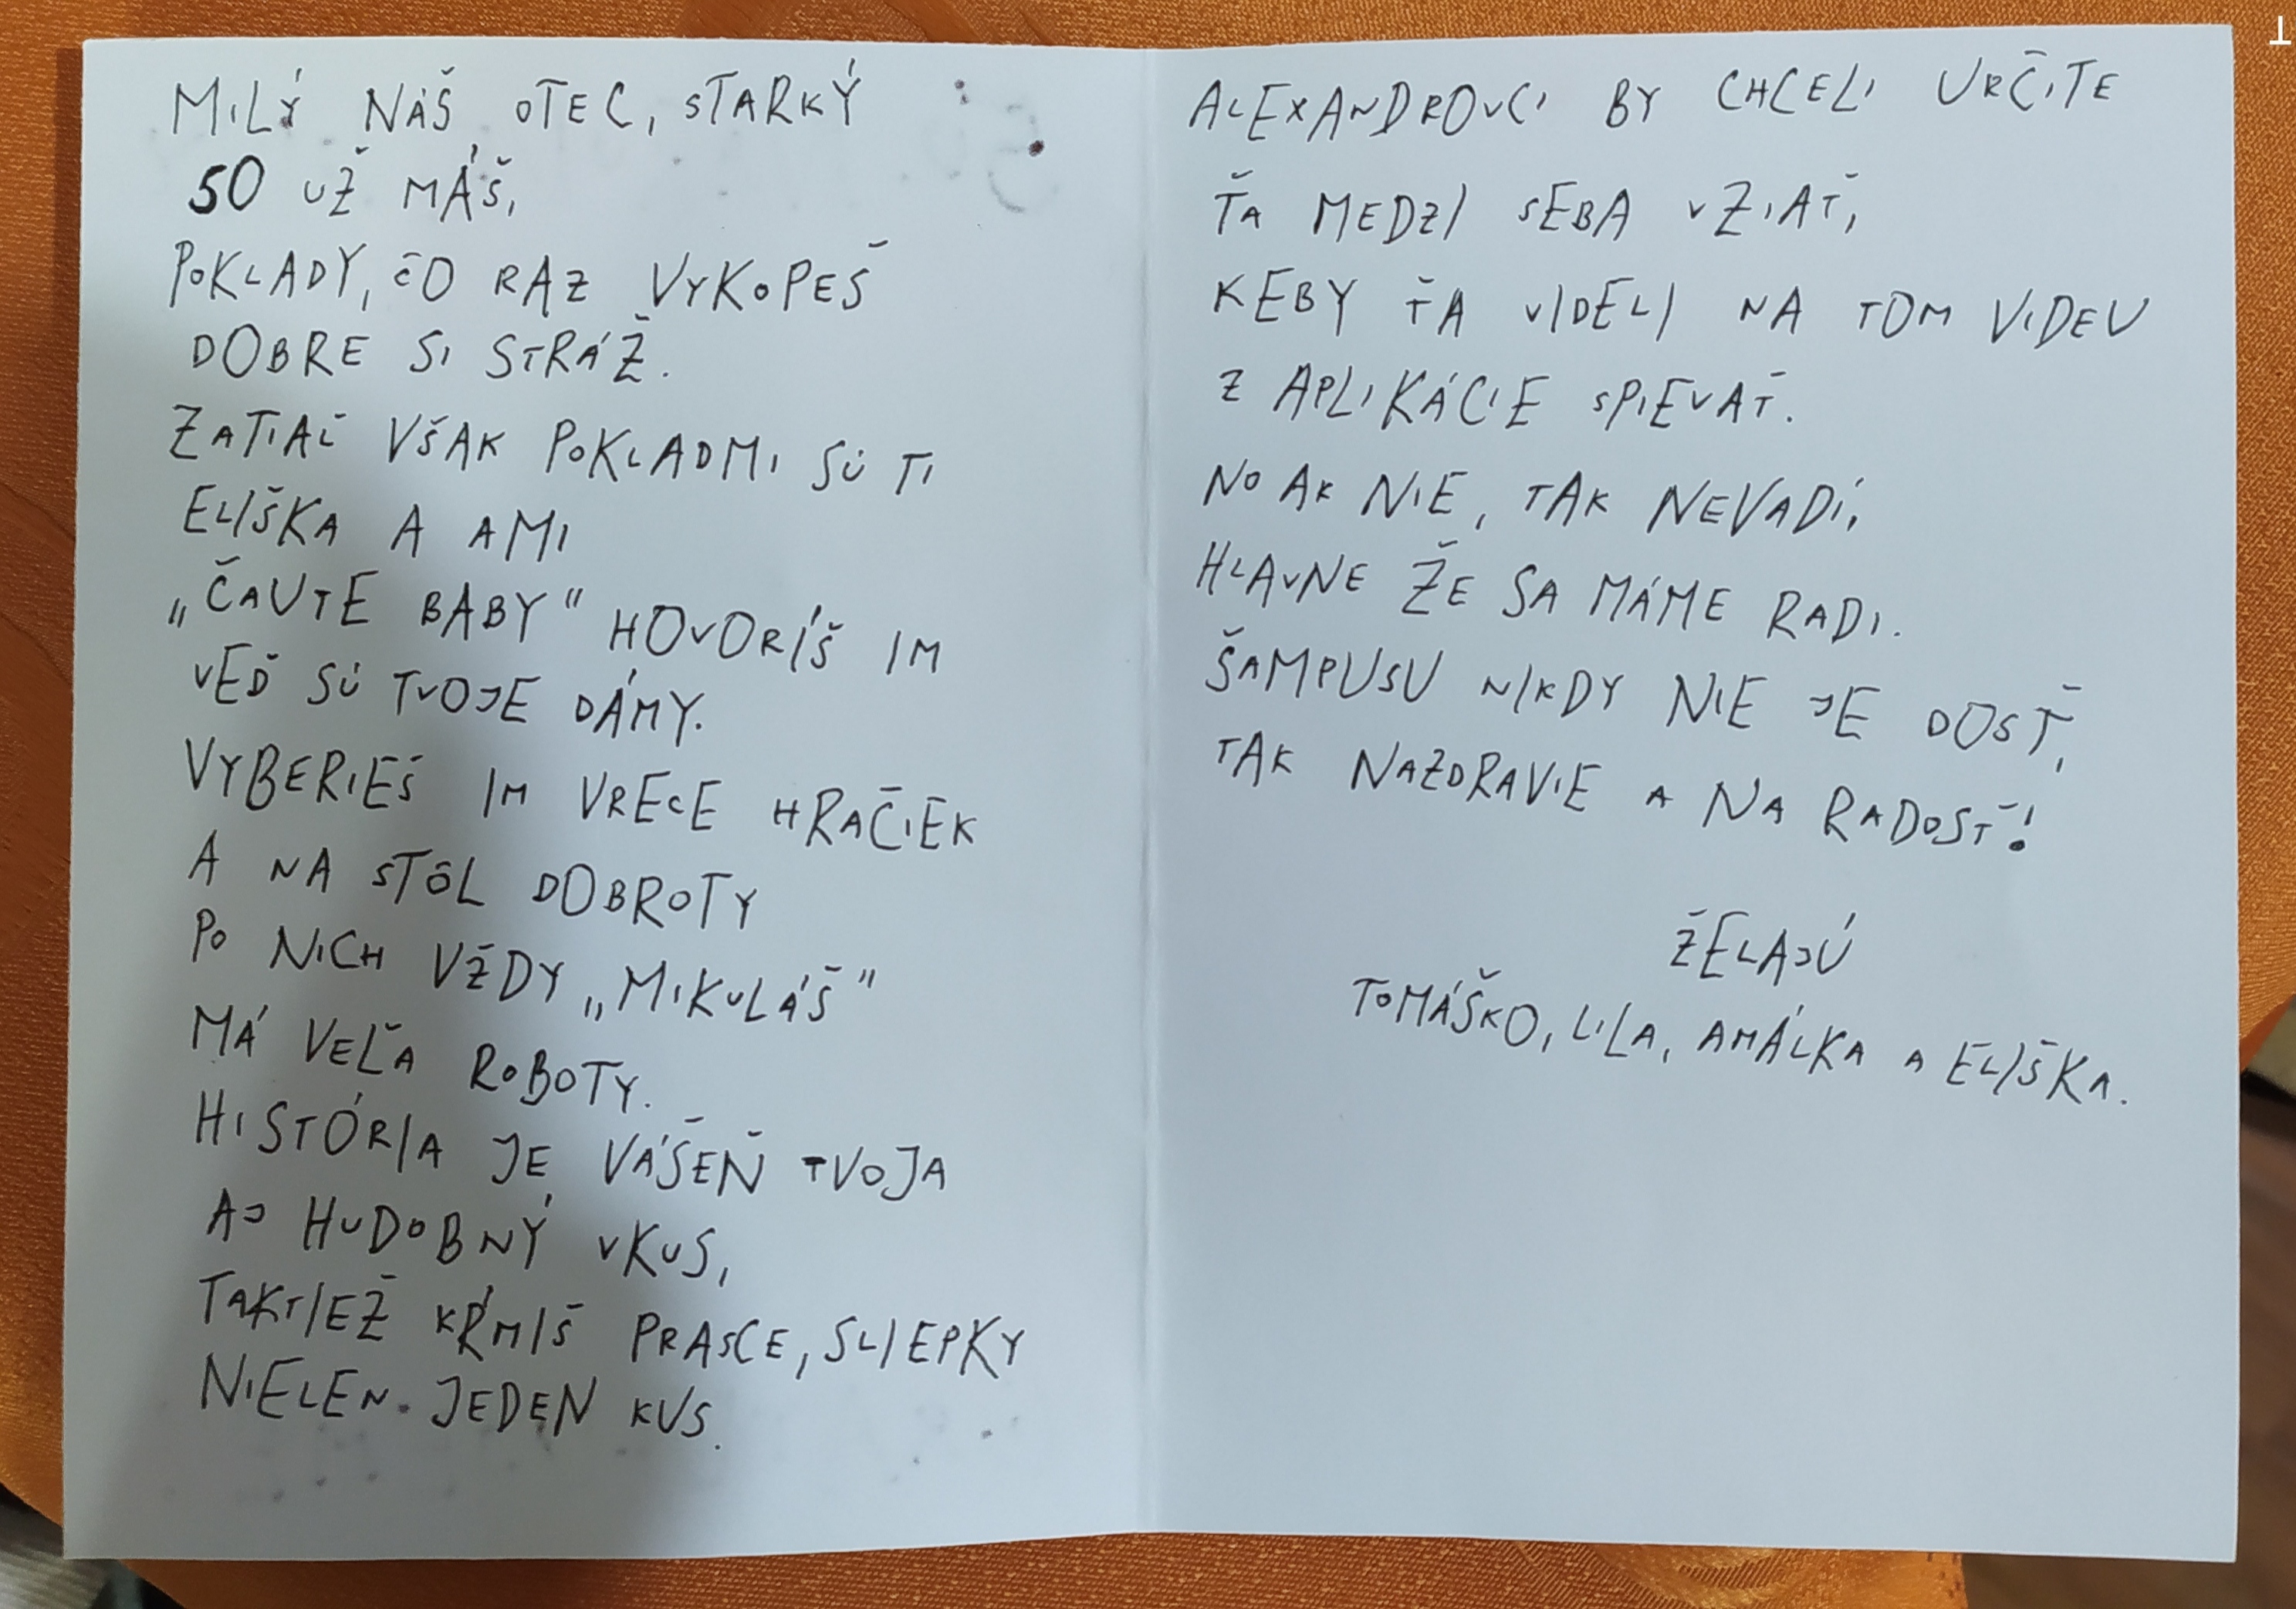 MILÝ NÁŠ OTEC, STARKÝ
50 UŽ MÁŠ,
POKLADY, ČO RAZ VYKOPEŠ
DOBRE SI STRÁŽ.
ZATIAĽ VŠAK POKLADMI SÚ TI
ELIŠKA A AMI
„ČAUTE BABY" HOVORÍŠ IM
VEĎ SÚ TVOJE DÁMY.
VYBERIEŠ IM VRECE HRAČIEK
A NA STÔL DOBROTY
PO NICH VŽDY „MIKULÁŠ"
MÁ VEĽA ROBOTY.
HISTÓRIA JE VÁŠEŇ TVOJA
AJ HUDOBNÝ VKUS,
TAKTIEŽ KŔMIŠ PRASCE, SLIEPKY
NIELEN JEDEN KUS.
ALEXANDROVCI BY CHCELI URČITE
ŤA MEDZI SEBA VZIAŤ,
KEBY ŤA VIDELI NA TOM VIDEU
Z APLIKÁCIE SPIEVAŤ.
NO AK NIE, TAK NEVADÍ,
HLAVNE ŽE SA MÁME RADI.
ŠAMPUSU NIKDY NIE JE DOSŤ,
TAK NAZDRAVIE A NA RADOSŤ!
ŽELAJÚ
TOMÁŠKO, LILA, AMÁLKA A ELIŠKA.